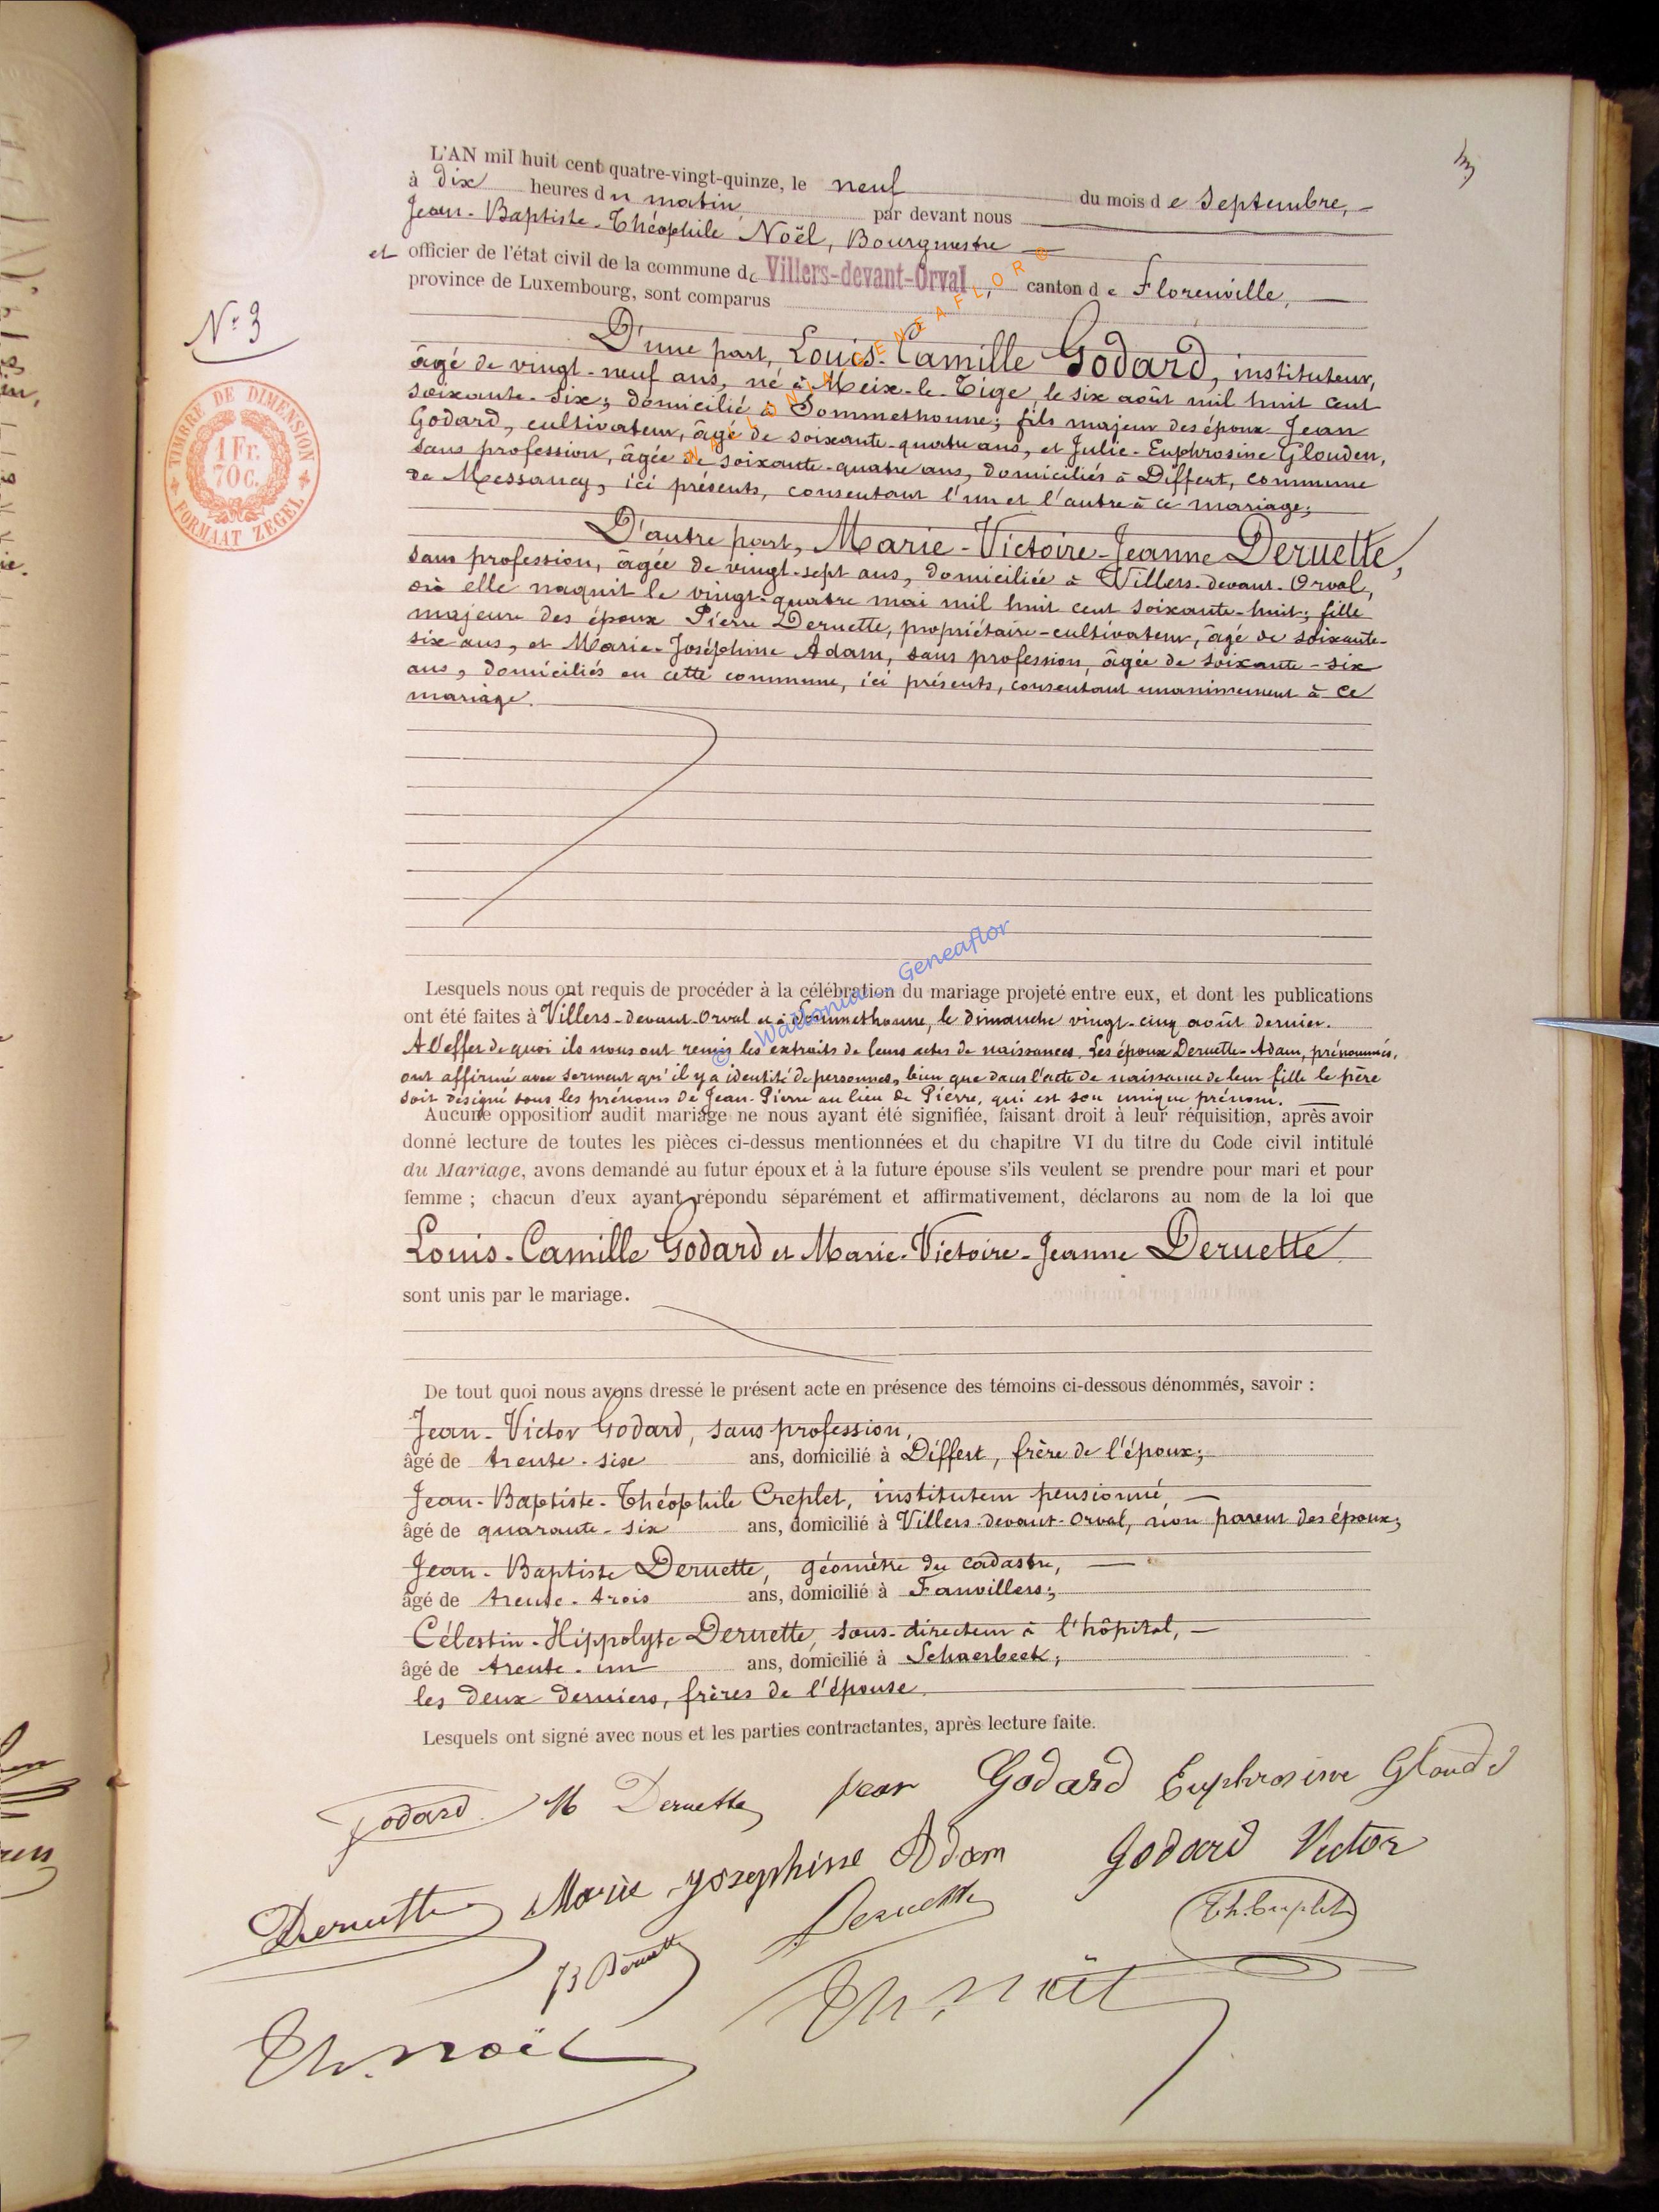 3
L'AN mil huit cent quatre-vingt-quinze, le neuf du mois de Septembre,
à dix heures du matin, par devant nous
Jean-Baptiste-Théophile Noël, Bourgmestre
et officier de l'état civil de la commune de Villers-devant-Orval, canton de Florenville,
province de Luxembourg, sont comparus
N° 3
TIMBRE DE DIMENSION
1 Fr.
70 c.
FORMAAT ZEGEL
D'une part, Louis-Camille Godard, instituteur,
âgé de vingt-neuf ans, né à Meix-le-Tige, le six août mil huit cent
soixante-six; domicilié à Sommethonne; fils majeur des époux Jean
Godard, cultivateur, âgé de soixante-quatre ans, et Julie-Euphrosine Glouden,
sans profession, âgée de soixante-quatre ans, domiciliés à Differt, commune
de Messancy, ici présents, consentant l'un et l'autre à ce mariage;
D'autre part, Marie-Victoire-Jeanne Deruette,
sans profession, âgée de vingt-sept ans, domiciliée à Villers-devant-Orval,
où elle naquit le vingt-quatre mai mil huit cent soixante-huit; fille
majeure des époux Pierre Deruette, propriétaire-cultivateur, âgé de soixante-
six ans, et Marie-Joséphine Adam, sans profession, âgée de soixante-six
ans, domiciliés en cette commune, ici présents, consentant unanimement à ce
mariage.
WALLONIA GENEAFLOR ©
© Wallonia - Geneaflor
Lesquels nous ont requis de procéder à la célébration du mariage projeté entre eux, et dont les publications
ont été faites à Villers-devant-Orval et à Sommethonne, le dimanche vingt-cinq août dernier.
A l'effet de quoi ils nous ont remis les extraits de leurs actes de naissances. Les époux Deruette-Adam, prénommés,
ont affirmé avec serment qu'il y a identité de personnes, bien que dans l'acte de naissance de leur fille le père
soit désigné sous les prénoms de Jean-Pierre au lieu de Pierre, qui est son unique prénom.
Aucune opposition audit mariage ne nous ayant été signifiée, faisant droit à leur réquisition, après avoir
donné lecture de toutes les pièces ci-dessus mentionnées et du chapitre VI du titre du Code civil intitulé
du Mariage, avons demandé au futur époux et à la future épouse s'ils veulent se prendre pour mari et pour
femme ; chacun d'eux ayant répondu séparément et affirmativement, déclarons au nom de la loi que
Louis-Camille Godard et Marie-Victoire-Jeanne Deruette
sont unis par le mariage.
De tout quoi nous avons dressé le présent acte en présence des témoins ci-dessous dénommés, savoir :
Jean-Victor Godard, sans profession,
âgé de trente-six ans, domicilié à Differt, frère de l'époux;
Jean-Baptiste-Théophile Creplet, instituteur pensionné,
âgé de quarante-six ans, domicilié à Villers-devant-Orval, non parent des époux;
Jean-Baptiste Deruette, géomètre du cadastre,
âgé de trente-trois ans, domicilié à Fauvillers;
Célestin-Hippolyte Deruette, sous-directeur à l'hôpital,
âgé de trente-un ans, domicilié à Schaerbeek;
les deux derniers, frères de l'épouse.
Lesquels ont signé avec nous et les parties contractantes, après lecture faite.
Godard M Deruette Jean Godard Euphrosine Gloude
Deruette Marie Josephine Adam Godard Victor
JB Deruette Deruette Th. Creplet
Th. Noël Th. Noël